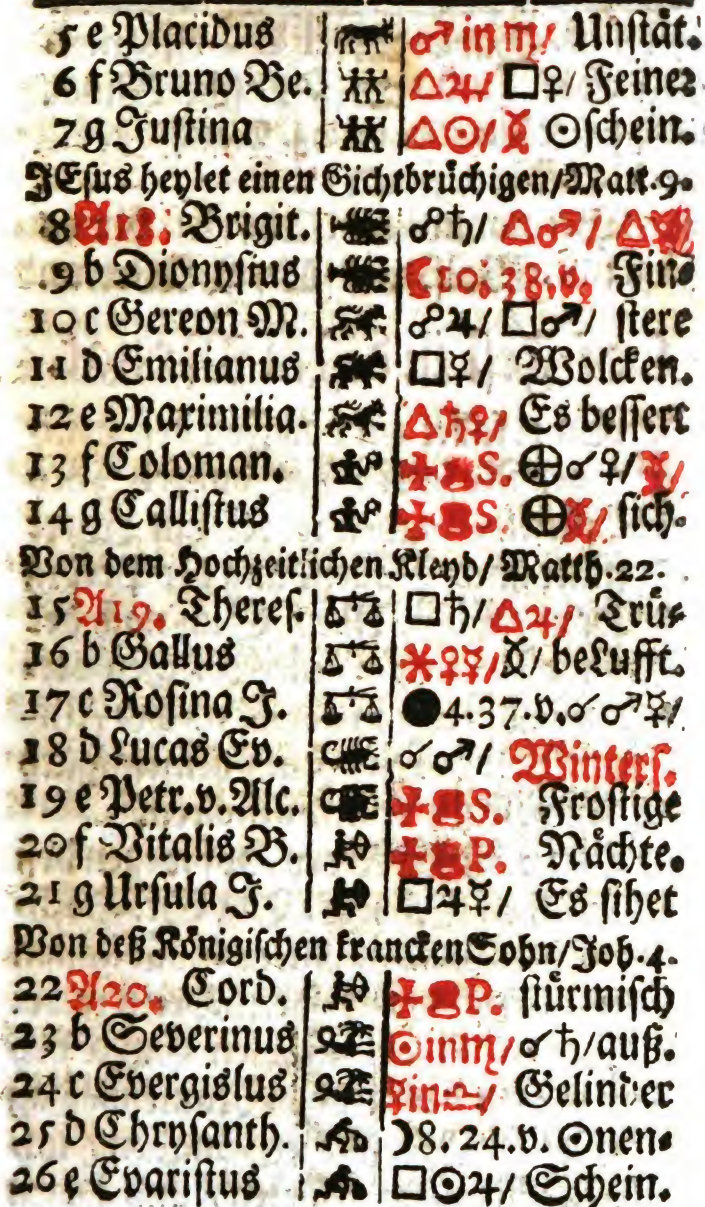 5 e Placidus ♂ in ♏/ Unstät.
6 f Bruno Be. △♃/ □♀/ Feiner
7 g Justina △☉/ ☉schein.
JEsus heylet einen Gichtbrüchigen/Matt.9.
8 A18. Brigit. ☍♄/ △♂/ △
9 b Dionysius ☾10.38.v. Fin-
10 c Gereon M. ☍♃/ □♂/ stere
11 d Emilianus □☿/ Wolcken.
12 e Maximilia. △♄♀/ Es bessert
13 f Coloman. S. ⊕☌♀/
14 g Callistus S. ⊕ / sich.
Von dem Hochzeitlichen Kleyd/ Matth.22.
15 A19. Theres. □♄/△♃/ Trü-
16 b Gallus ⚹♀☿/ / beLufft.
17 c Rosina J. ●4.37.v.☌♂☿/
18 d Lucas Ev. ☌♂/ Winters.
19 e Petr.v.Alc. S. Frostige
20 f Vitalis B. P. Nächte.
21 g Ursula J. □♃☿/ Es sihet
Von deß Königischen krancken Sohn/Joh.4.
22 A20. Cord. P. stürmisch
23 b Severinus ☉in♏/☌♄/auß.
24 c Evergislus ♀in♎/ Gelinder
25 d Chrysanth. ☽8.24.v. ☉nen-
26 e Evaristus □☉♃/ Schein.